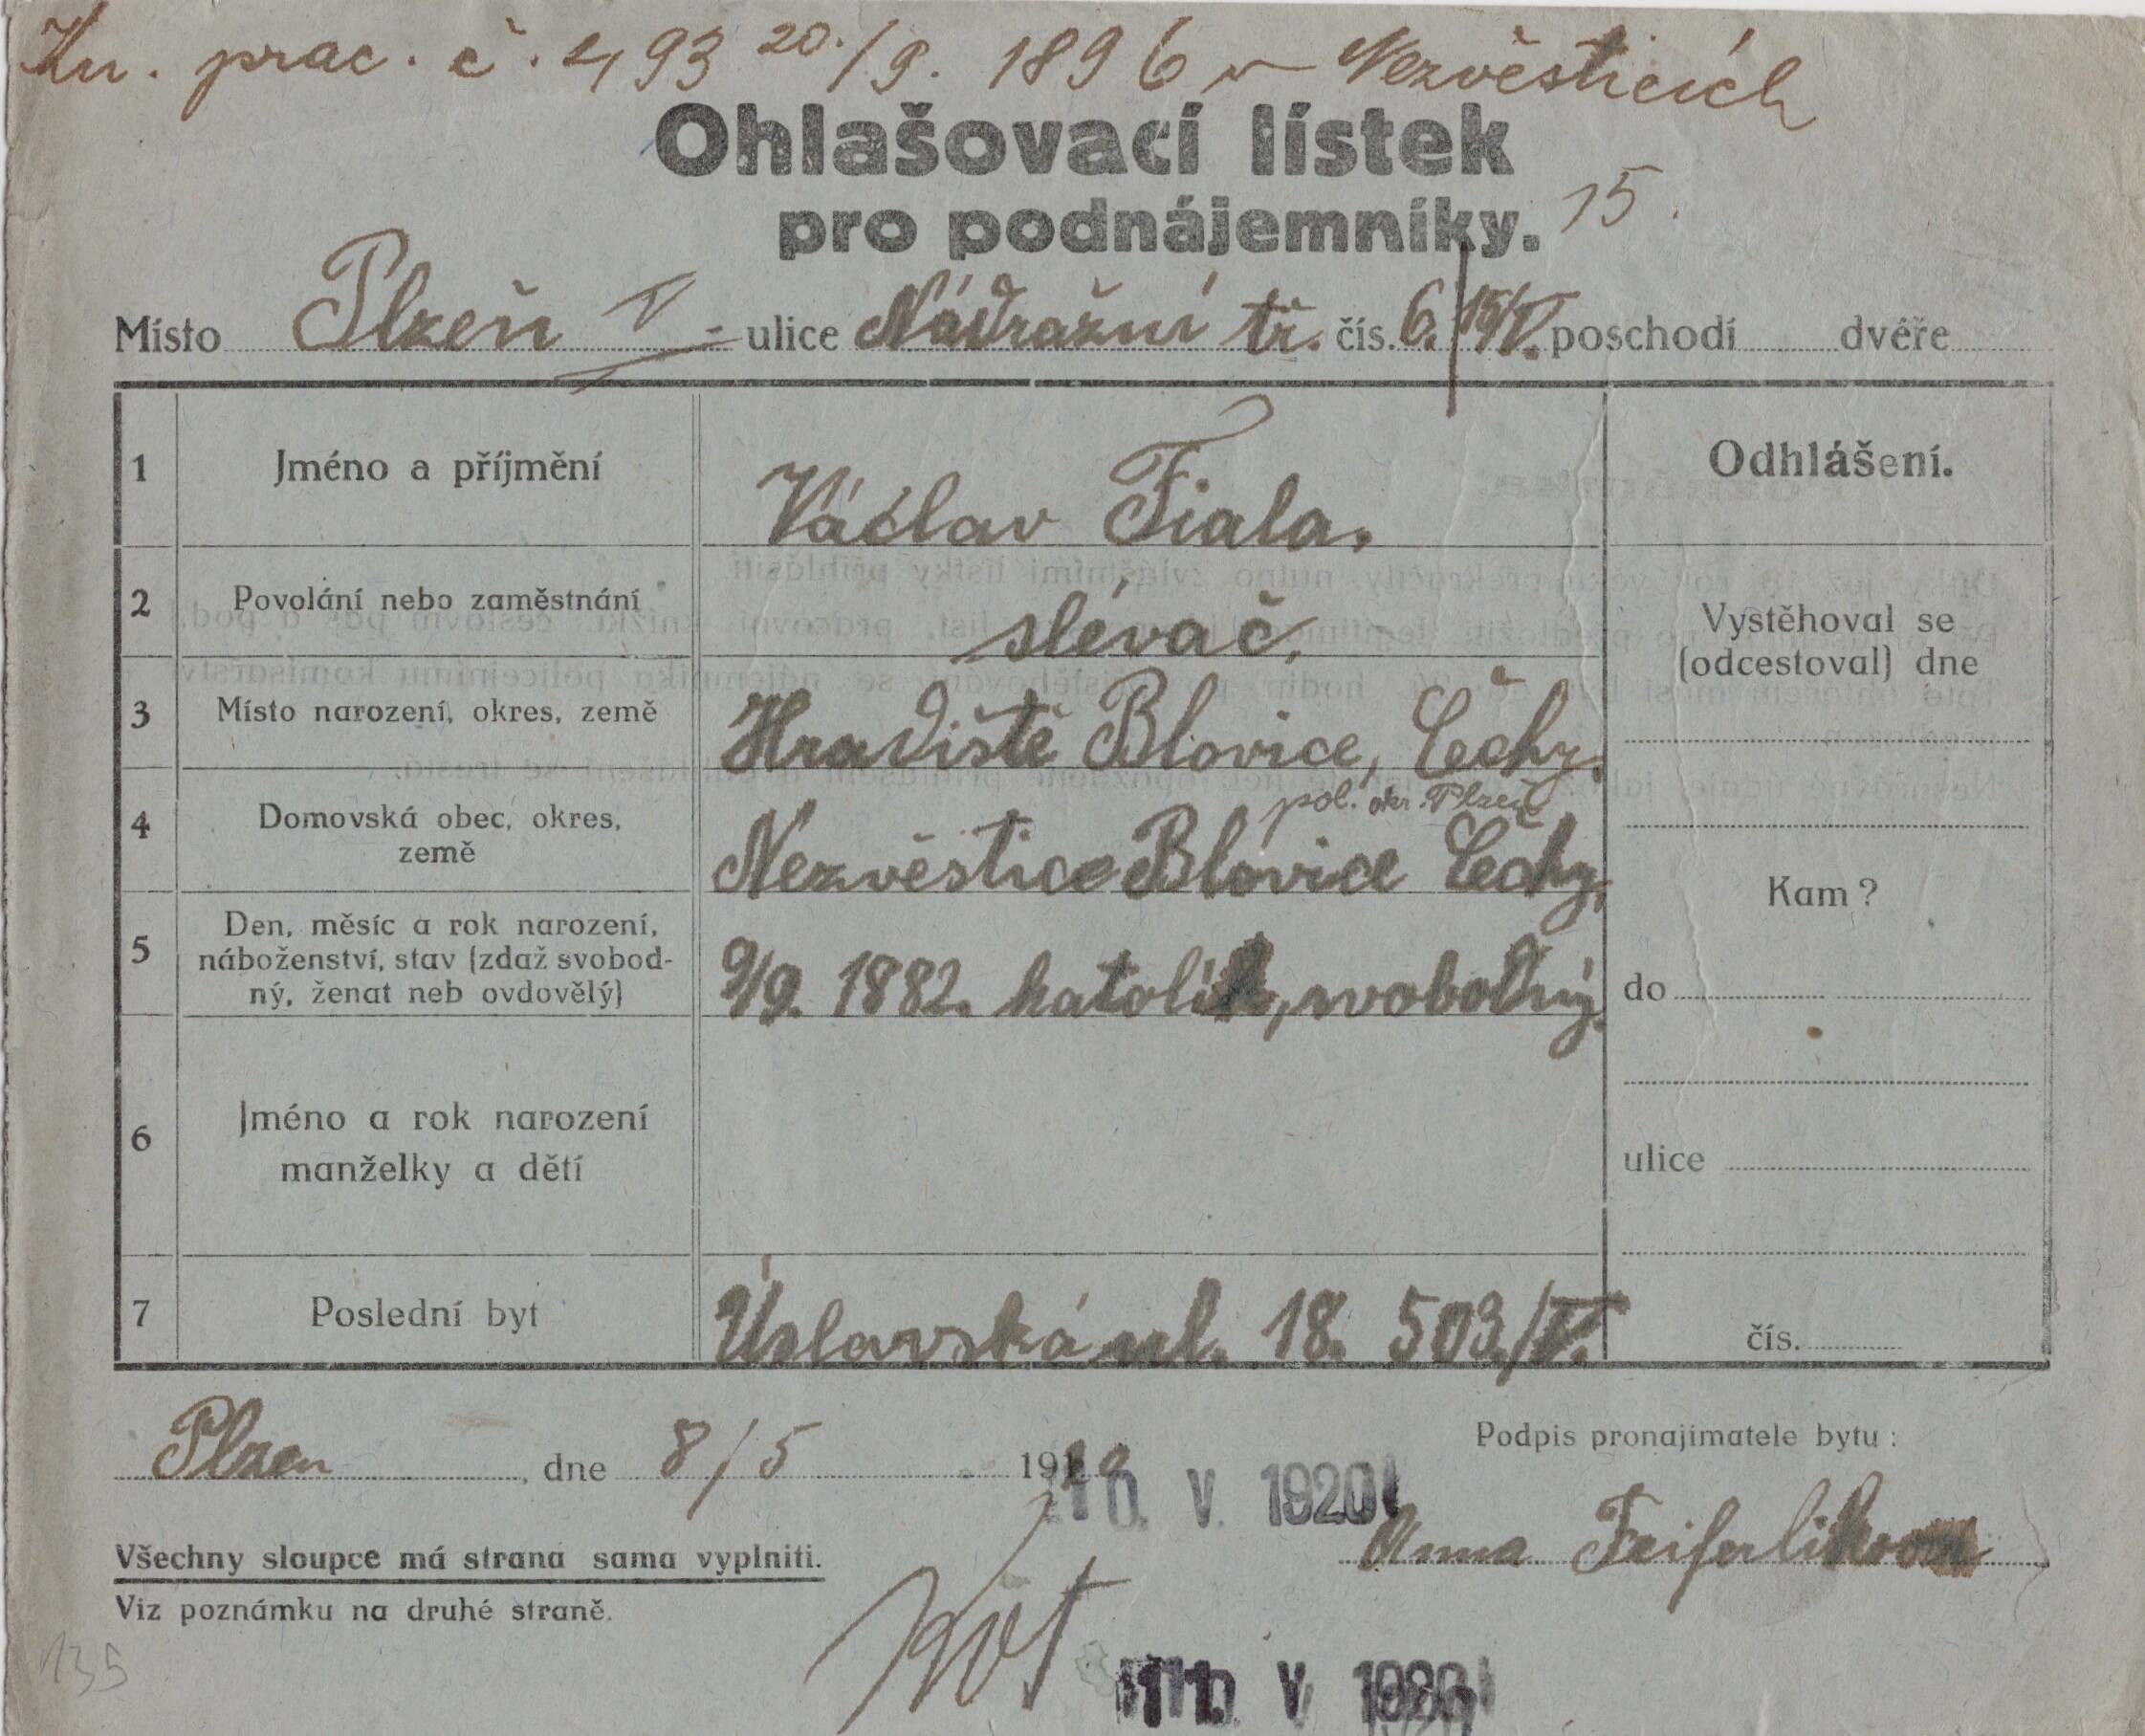 Kn. prac. č. 493 20./9. 1896 v Nezvěsticích
Ohlašovací lístek
pro podnájemníky.
15.
Místo Plzeň V ulice Nádražní tř. čís. 6./15/V. poschodí dvéře
1 Jméno a příjmění Václav Fiala. Odhlášení.
2 Povolání nebo zaměstnání slévač.
Vystěhoval se
(odcestoval) dne
3 Místo narození, okres, země Hradiště Blovice, Čechy.
pol. okr. Plzeň
4 Domovská obec, okres,
země
Nezvěstice Blovice Čechy.
Kam?
5 Den, měsíc a rok narození,
náboženství, stav (zdaž svobod-
ný, ženat neb ovdovělý)
9/9. 1882. katolík, svobodný.
do
6 Jméno a rok narození
manželky a dětí
ulice
7 Poslední byt Úslavská ul. 18. 503/V.
čís.
Plzen, dne 8/5 1920
Podpis pronajimatele bytu:
10. V. 1920
Anna Feiferlikova
Všechny sloupce má strana sama vyplniti.
Viz poznámku na druhé straně.
11. V 1920
135